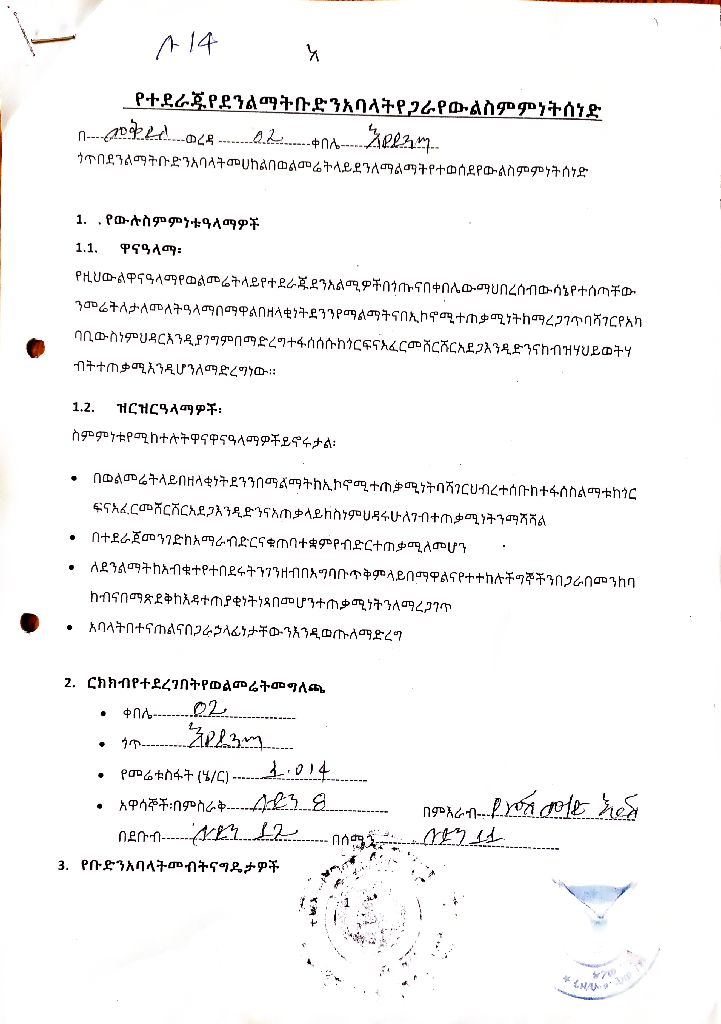 የተደራጁየደንልማትቡድንአባላትየጋራየውልስምምነትሰነድ
በ---- መቅደላ ወረዳ 02 ቀበሌ
ጎጥበደንልማትቡድንአባላትመሀከልበወልመሬትላይደንለማልማትየተወሰደየውልስምምነትሰነድ
1. .የውሉስምምነቱዓላማዎች
1.1. ዋናዓላማ፡
የዚህውልዋናዓላማየወልመሬትላይየተደራጁደንአልሚዎችበጎጡናበቀበሌውማህበረሰብውሳኔየተሰጣቸው
ንመሬትለታለመለትዓላማበማዋልበዘላቂነትደንንየማልማትናበኢኮኖሚተጠቃሚነትከማረጋገጥባሻገርየአካ
ባቢውስነምህዳርእንዲያገግምበማድረግተፋሰሰሱከጎርፍናአፈርመሸርሸርአደጋእንዲድንናከብዝሃህይወትሃ
ብትተጠቃሚእንዲሆንለማድረግነው።
1.2. ዝርዝርዓላማዎች፡
ስምምነቱየሚከተሉትዋናዋናዓላማዎችይኖሩታል፡
• በወልመሬትላይበዘላቂነትደንንበማልማትከኢኮኖሚተጠቃሚነትባሻገርህብረተሰቡከተፋሰስልማቱከጎር
ፍናአፈርመሸርሸርአደጋእንዲድንናአጠቃላይከስነምህዳሩሁለገብተጠቃሚነትንማሻሻል
• በተደራጀመንገድከአማራብድርናቁጠባተቋምየብድርተጠቃሚለመሆን
• ለደንልማትከአብቁተየተበደሩትንገንዘብበአግባቡጥቅምላይበማዋልናየተተከሉችግኞችንበጋራበመንከባ
ከብናበማጽደቅከእዳተጠያቂነትነጻበመሆንተጠቃሚነትንለማረጋገጥ
• አባላትበተናጠልናበጋራኃላፊነታቸውንእንዲወጡለማድረግ
2. ርክክብየተደረገበትየወልመሬትመግለጫ
• ቀበሌ 02
• ጎጥ
• የመሬቱስፋት (ሄ/ር) .014
• አዋሳኞች፡በምስራቅ 8 በምእራብ
በደቡብ 12 በሰሜን 11
3. የቡድንአባላትመብትናግዴታዎች